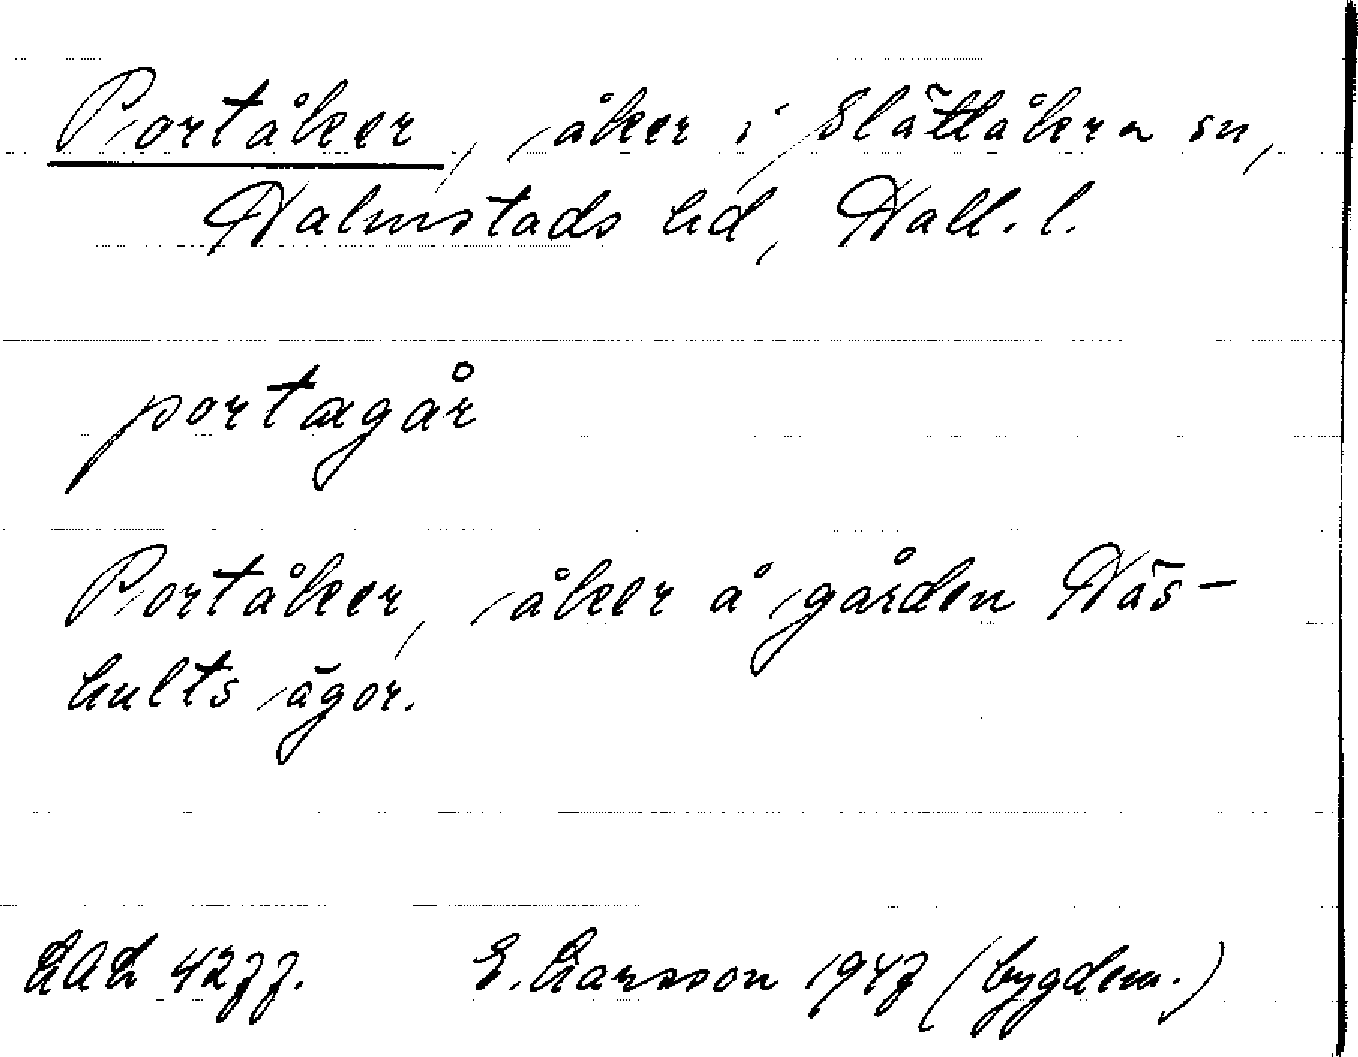 Portåker, åker i Slättåkra sn,
Halmstads hd, Hall. l.
portægår
Portåker, åker å gården Näs-
hults ägor.
LAL 4277. E. Larsson 1947 (bygdem.)